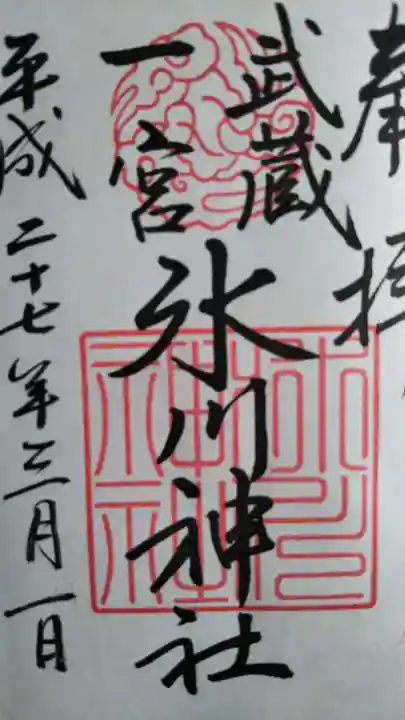 奉拝
武蔵
一宮
氷川神社
平成二十七年三月一日